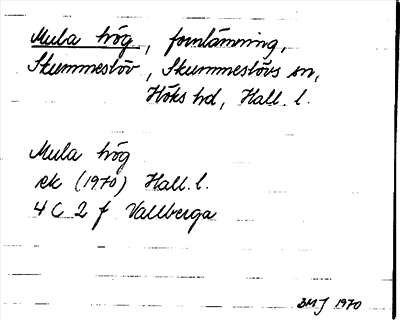 Mula hög, fornlämning,
Skummeslöv, Skummeslövs sn,
Höks hd, Hall. l.
Mula hög
ek (1970) Hall. l.
4 C 2 f Vallberga
BMJ 1970